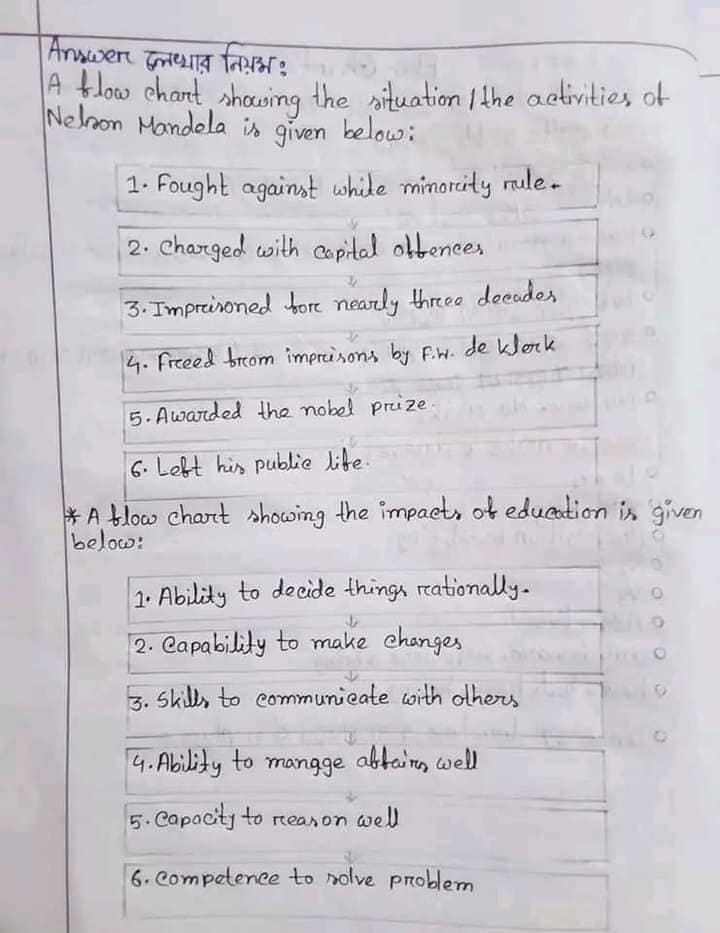 Answer লেখার নিয়ম:
A flow chart showing the situation / the activities of
Nelson Mandela is given below:
1. Fought against white minority rule.
2. Charged with capital offences
3. Imprisoned for nearly three decades
4. Freed from imprisons by F.W. de klerk
5. Awarded the nobel prize.
6. Left his public life.
* A flow chart showing the impacts of education is given
below:
1. Ability to decide things rationally.
2. Capability to make changes
3. Skills to communicate with others
4. Ability to mangge affairs well
5. Capacity to reason well
6. Competence to solve problem